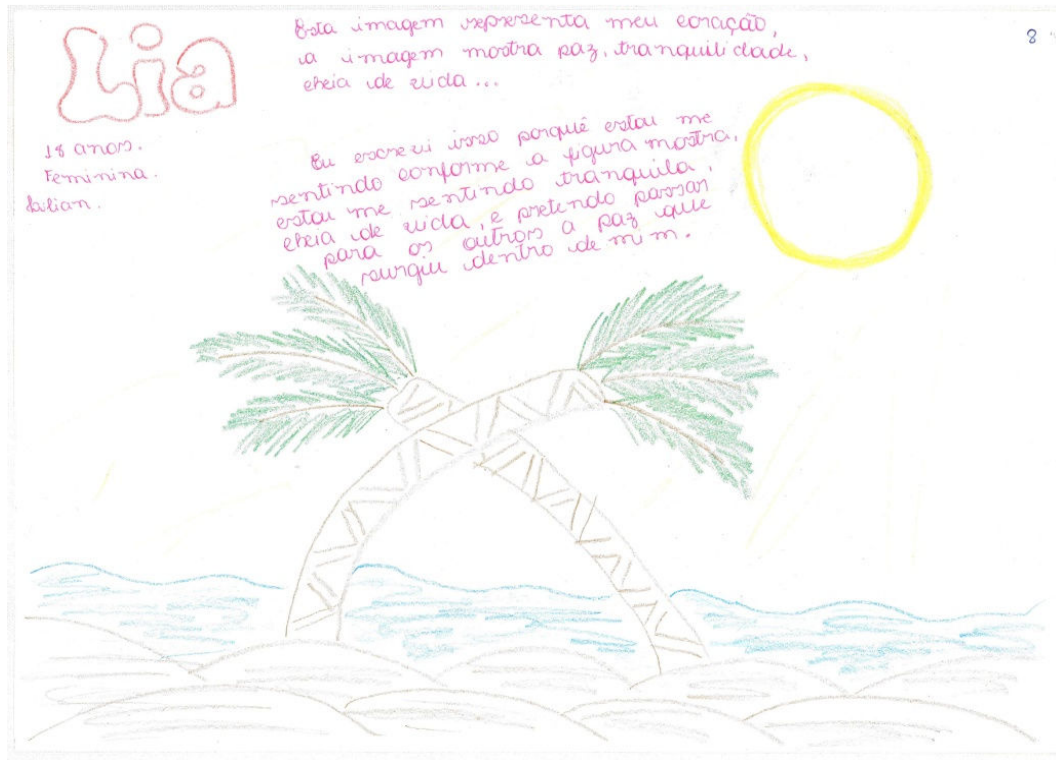 Lia
18 anos.
Feminina.
Lilian.
Esta imagem representa meu coração,
a imagem mostra paz, tranquilidade,
cheia de vida...
Eu escrevi isso porquê estou me
sentindo conforme a figura mostra,
estou me sentindo tranquila,
cheia de vida, e pretendo passar
para os outros a paz que
surgiu dentro de mim.
8